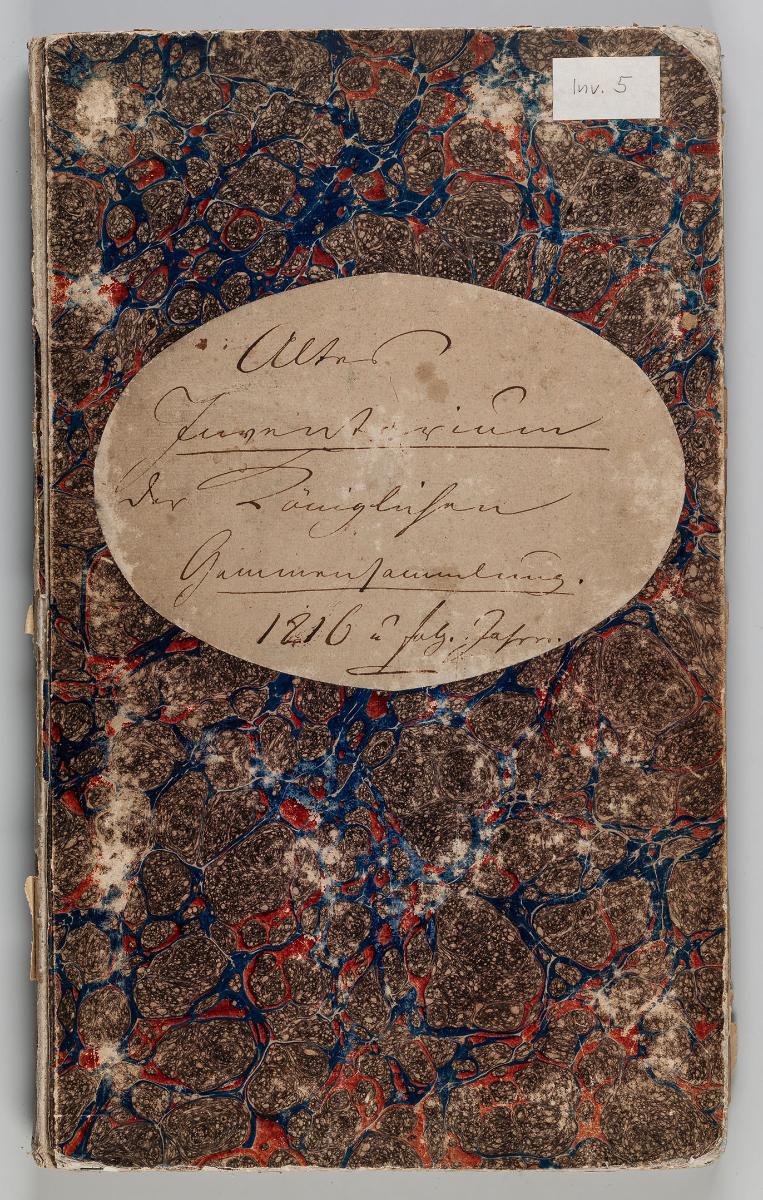 Inv. 5
Altes
Inventorium
der Königlichen
Gemmensammlung.
1816 u folg. Jahre.